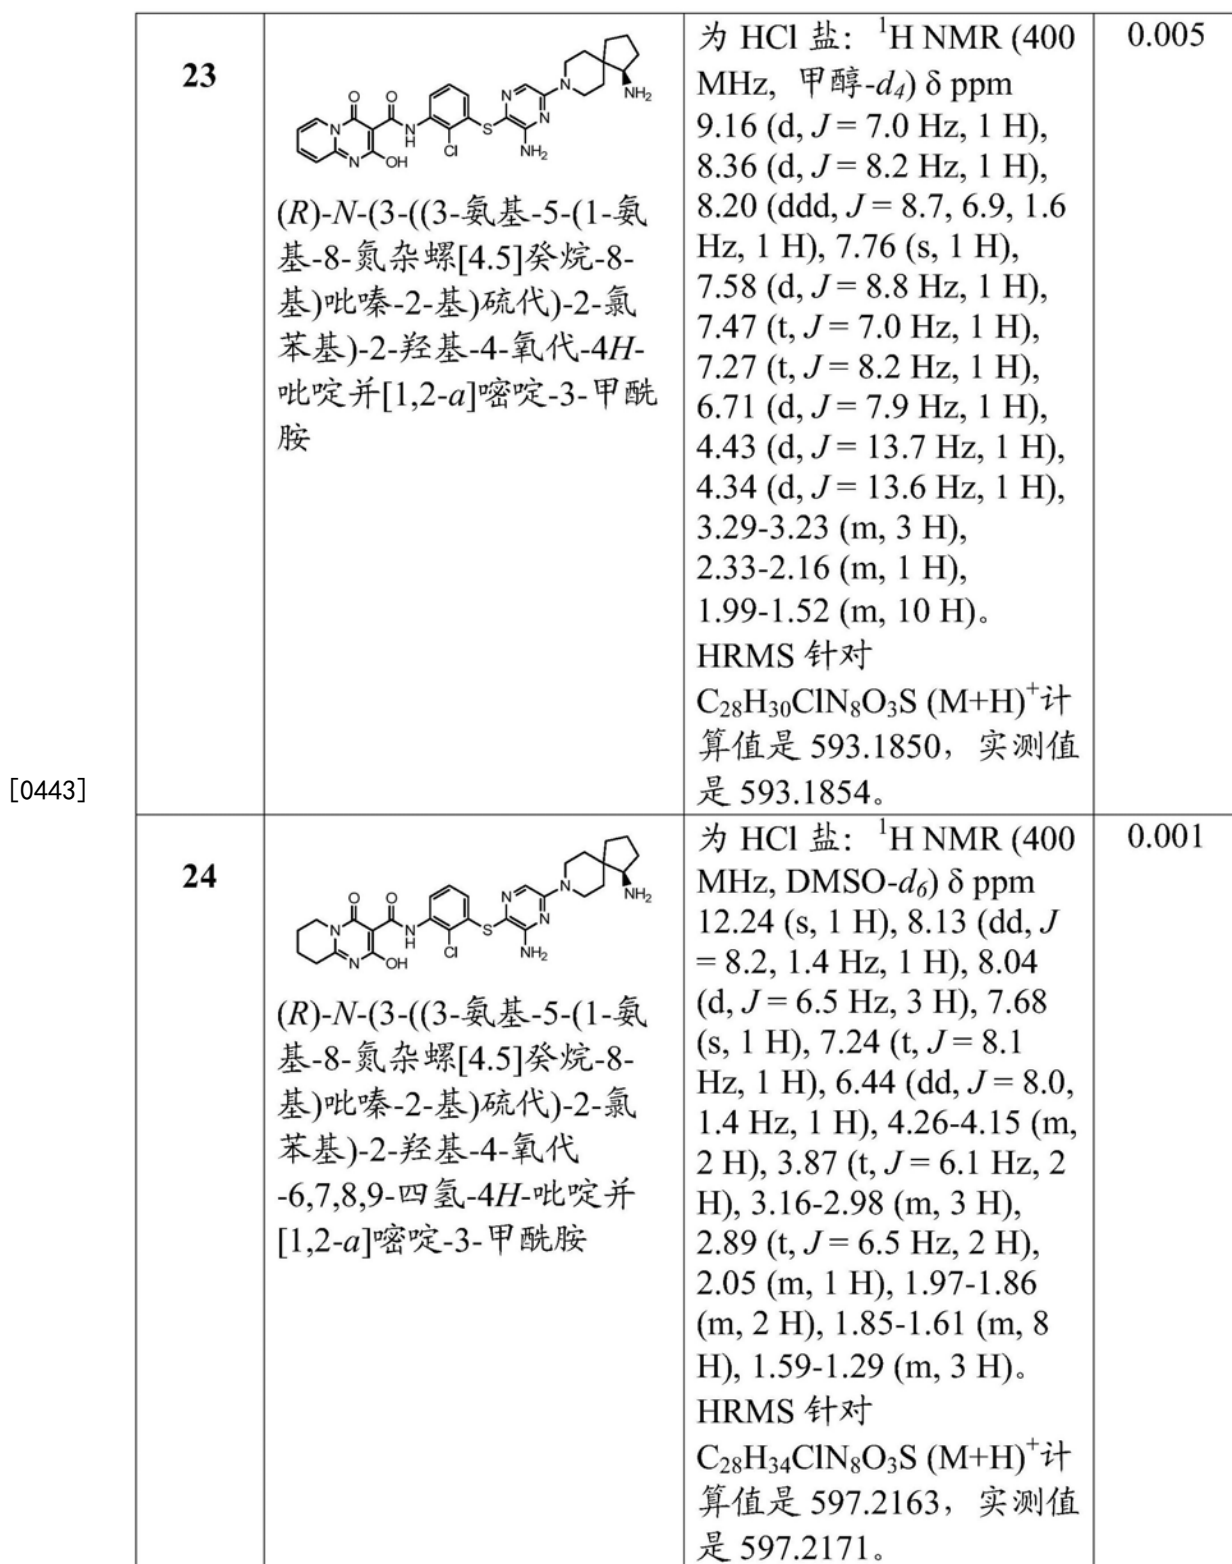 23
(R)-N-(3-((3-氨基-5-(1-氨
基-8-氮杂螺[4.5]癸烷-8-
基)吡嗪-2-基)硫代)-2-氯
苯基)-2-羟基-4-氧代-4H-
吡啶并[1,2-a]嘧啶-3-甲酰
胺
为 HCl 盐：¹H NMR (400
MHz, 甲醇-d₄) δ ppm
9.16 (d, J = 7.0 Hz, 1 H),
8.36 (d, J = 8.2 Hz, 1 H),
8.20 (ddd, J = 8.7, 6.9, 1.6
Hz, 1 H), 7.76 (s, 1 H),
7.58 (d, J = 8.8 Hz, 1 H),
7.47 (t, J = 7.0 Hz, 1 H),
7.27 (t, J = 8.2 Hz, 1 H),
6.71 (d, J = 7.9 Hz, 1 H),
4.43 (d, J = 13.7 Hz, 1 H),
4.34 (d, J = 13.6 Hz, 1 H),
3.29-3.23 (m, 3 H),
2.33-2.16 (m, 1 H),
1.99-1.52 (m, 10 H)。
HRMS 针对
C₂₈H₃₀ClN₈O₃S (M+H)⁺计
算值是 593.1850，实测值
是 593.1854。
0.005
[0443]
24
(R)-N-(3-((3-氨基-5-(1-氨
基-8-氮杂螺[4.5]癸烷-8-
基)吡嗪-2-基)硫代)-2-氯
苯基)-2-羟基-4-氧代
-6,7,8,9-四氢-4H-吡啶并
[1,2-a]嘧啶-3-甲酰胺
为 HCl 盐：¹H NMR (400
MHz, DMSO-d₆) δ ppm
12.24 (s, 1 H), 8.13 (dd, J
= 8.2, 1.4 Hz, 1 H), 8.04
(d, J = 6.5 Hz, 3 H), 7.68
(s, 1 H), 7.24 (t, J = 8.1
Hz, 1 H), 6.44 (dd, J = 8.0,
1.4 Hz, 1 H), 4.26-4.15 (m,
2 H), 3.87 (t, J = 6.1 Hz, 2
H), 3.16-2.98 (m, 3 H),
2.89 (t, J = 6.5 Hz, 2 H),
2.05 (m, 1 H), 1.97-1.86
(m, 2 H), 1.85-1.61 (m, 8
H), 1.59-1.29 (m, 3 H)。
HRMS 针对
C₂₈H₃₄ClN₈O₃S (M+H)⁺计
算值是 597.2163，实测值
是 597.2171。
0.001